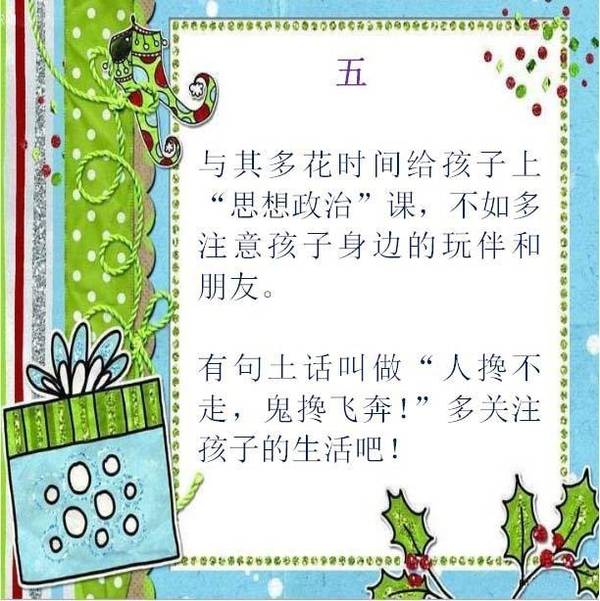 五
与其多花时间给孩子上
“思想政治”课，不如多
注意孩子身边的玩伴和
朋友。
有句土话叫做“人搀不
走，鬼搀飞奔！”多关注
孩子的生活吧！